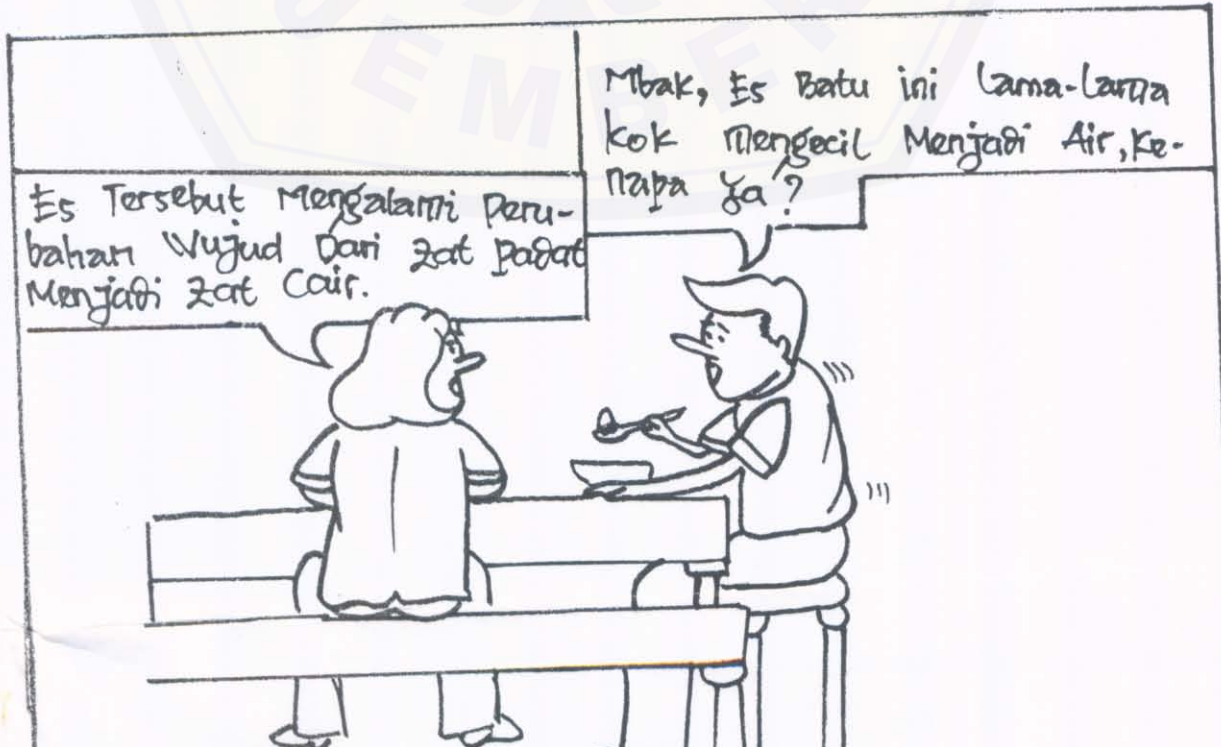 EMBE
Mbak, Es Batu ini Lama-Lama
kok Mengecil Menjadi Air, Ke-
napa ya?
Es Tersebut Mengalami Peru-
bahan Wujud Dari Zat Padat
Menjadi Zat Cair.